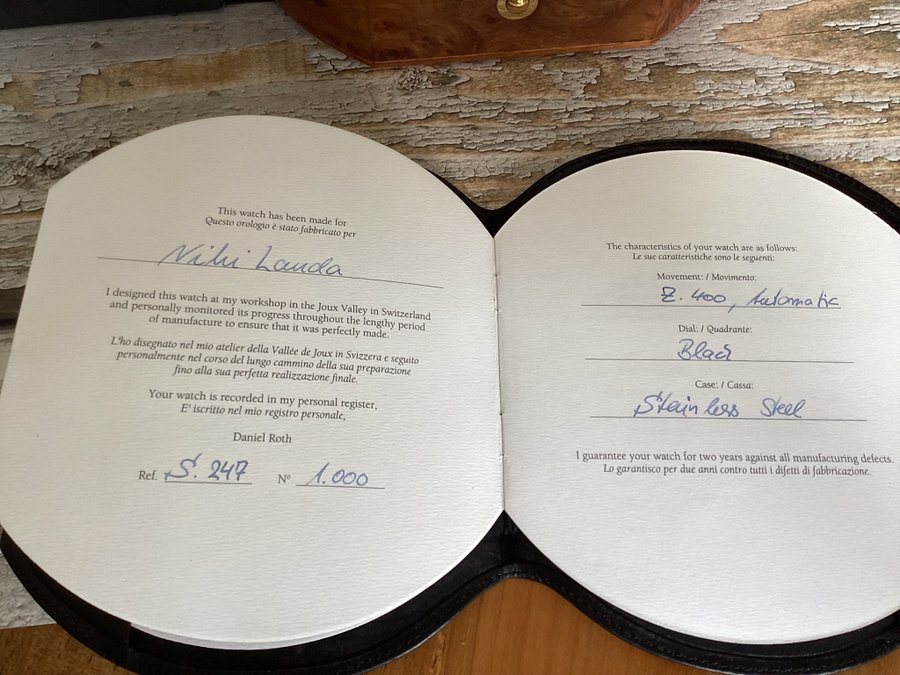 This watch has been made for
Questo orologio è stato fabbricato per
Niki Lauda
I designed this watch at my workshop in the Joux Valley in Switzerland
and personally monitored its progress throughout the lengthy period
of manufacture to ensure that it was perfectly made.
L'ho disegnato nel mio atelier della Vallée de Joux in Svizzera e seguito
personalmente nel corso del lungo cammino della sua preparazione
fino alla sua perfetta realizzazione finale.
Your watch is recorded in my personal register,
E' iscritto nel mio registro personale,
Daniel Roth
Ref. S. 247 N° 1.000
The characteristics of your watch are as follows:
Le sue caratteristiche sono le seguenti:
Movement: / Movimento:
Z. 400, Automatic
Dial: / Quadrante:
Black
Case: / Cassa:
Stainless Steel
I guarantee your watch for two years against all manufacturing defects.
Lo garantisco per due anni contro tutti i difetti di fabbricazione.